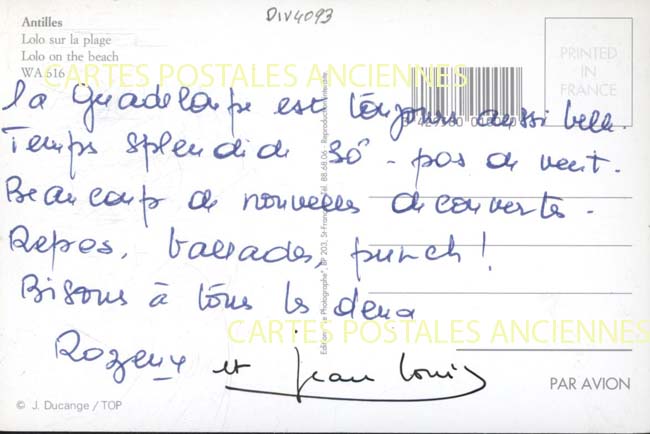 DIV4093
Antilles
Lolo sur la plage
Lolo on the beach
WA 616
PRINTED
IN
FRANCE
CARTES POSTALES ANCIENNES
la Guadeloupe est toujours aussi belle.
Temps splendide 30° - pas de vent.
Beaucoup de nouvelles découvertes -
Repos, ballades, punch !
Bisous à tous les deux
CARTES POSTALES ANCIENNES
et Jean Louis
PAR AVION
© J. Ducange / TOP
Edition "Le Photographe", BP 203, St-François
Reproduction interdite